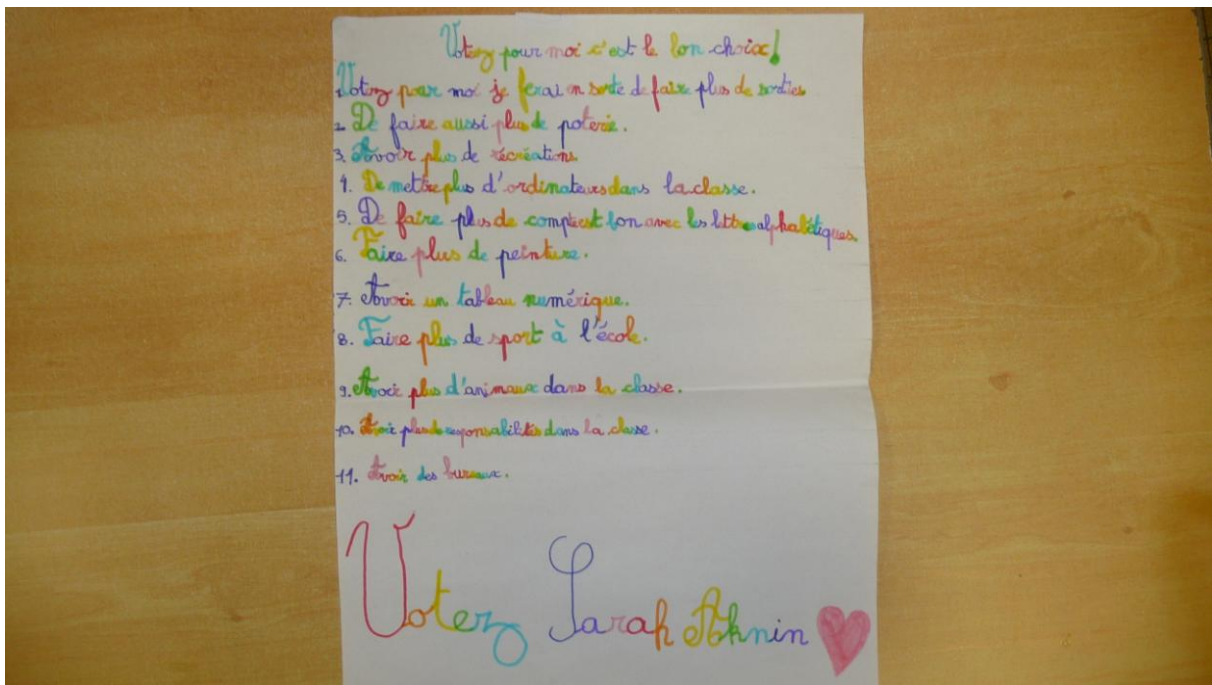 Votez pour moi c'est le bon choix!
1. Votez pour moi je ferai en sorte de faire plus de sorties
2. De faire aussi plus de poterie.
3. Avoir plus de récréations.
4. De mettre plus d'ordinateurs dans la classe.
5. De faire plus de compte est bon avec les lettres alphabétiques.
6. Faire plus de peinture.
7. Avoir un tableau numérique.
8. Faire plus de sport à l'école.
9. Avoir plus d'animaux dans la classe.
10. Avoir plus de responsabilités dans la classe.
11. Avoir des bureaux.
Votez Sarah Aknin